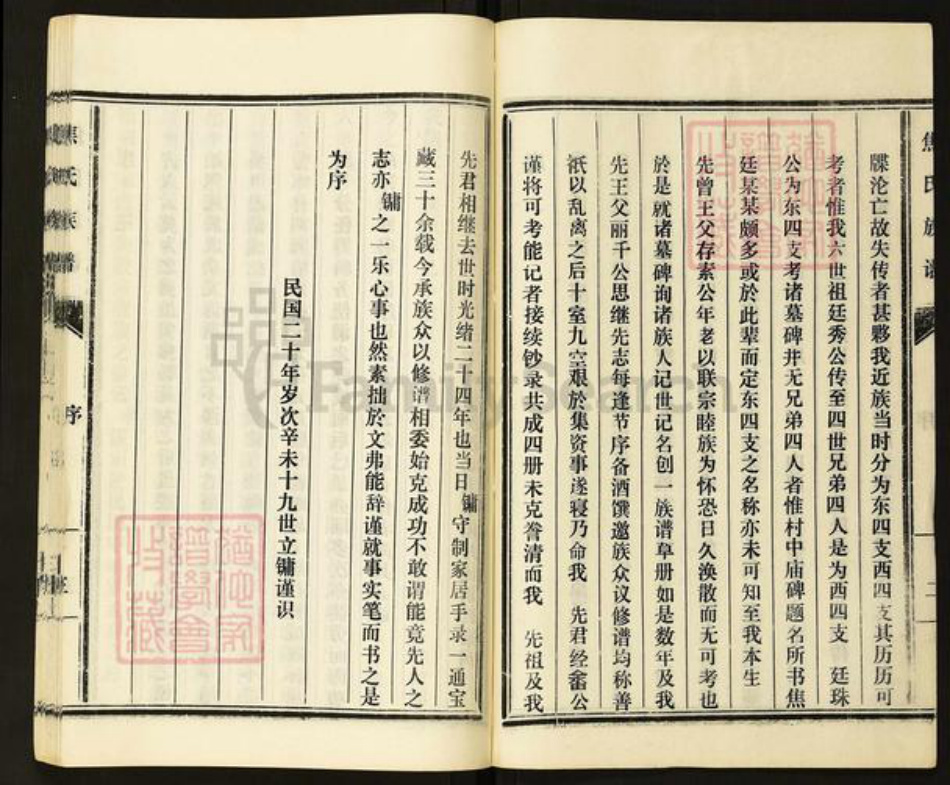 牒沦亡故失传者甚夥我近族当时分为东四支西四支其历历可
考者惟我六世祖廷秀公传至四世兄弟四人是为西四支 廷珠
公为东四支考诸墓碑并无兄弟四人者惟村中庙碑题名所书焦
廷某某颇多或於此辈而定东四支之名称亦未可知至我本生
先曾王父存素公年老以联宗睦族为怀恐日久涣散而无可考也
於是就诸墓碑询诸族人记世记名创一族谱草册如是数年及我
先王父丽千公思继先志每逢节序备酒馔邀族众议修谱均称善
祇以乱离之后十室九空艰於集资事遂寝乃命我 先君经畬公
谨将可考能记者接续钞录共成四册未克誊清而我 先祖及我
先君相继去世时光绪二十四年也当日镛守制家居手录一通宝
藏三十余载今承族众以修谱相委始克成功不敢谓能竟先人之
志亦镛之一乐心事也然素拙於文弗能辞谨就事实笔而书之是
为序
民国二十年岁次辛未十九世立镛谨识
焦氏族谱
序
FamilySearch